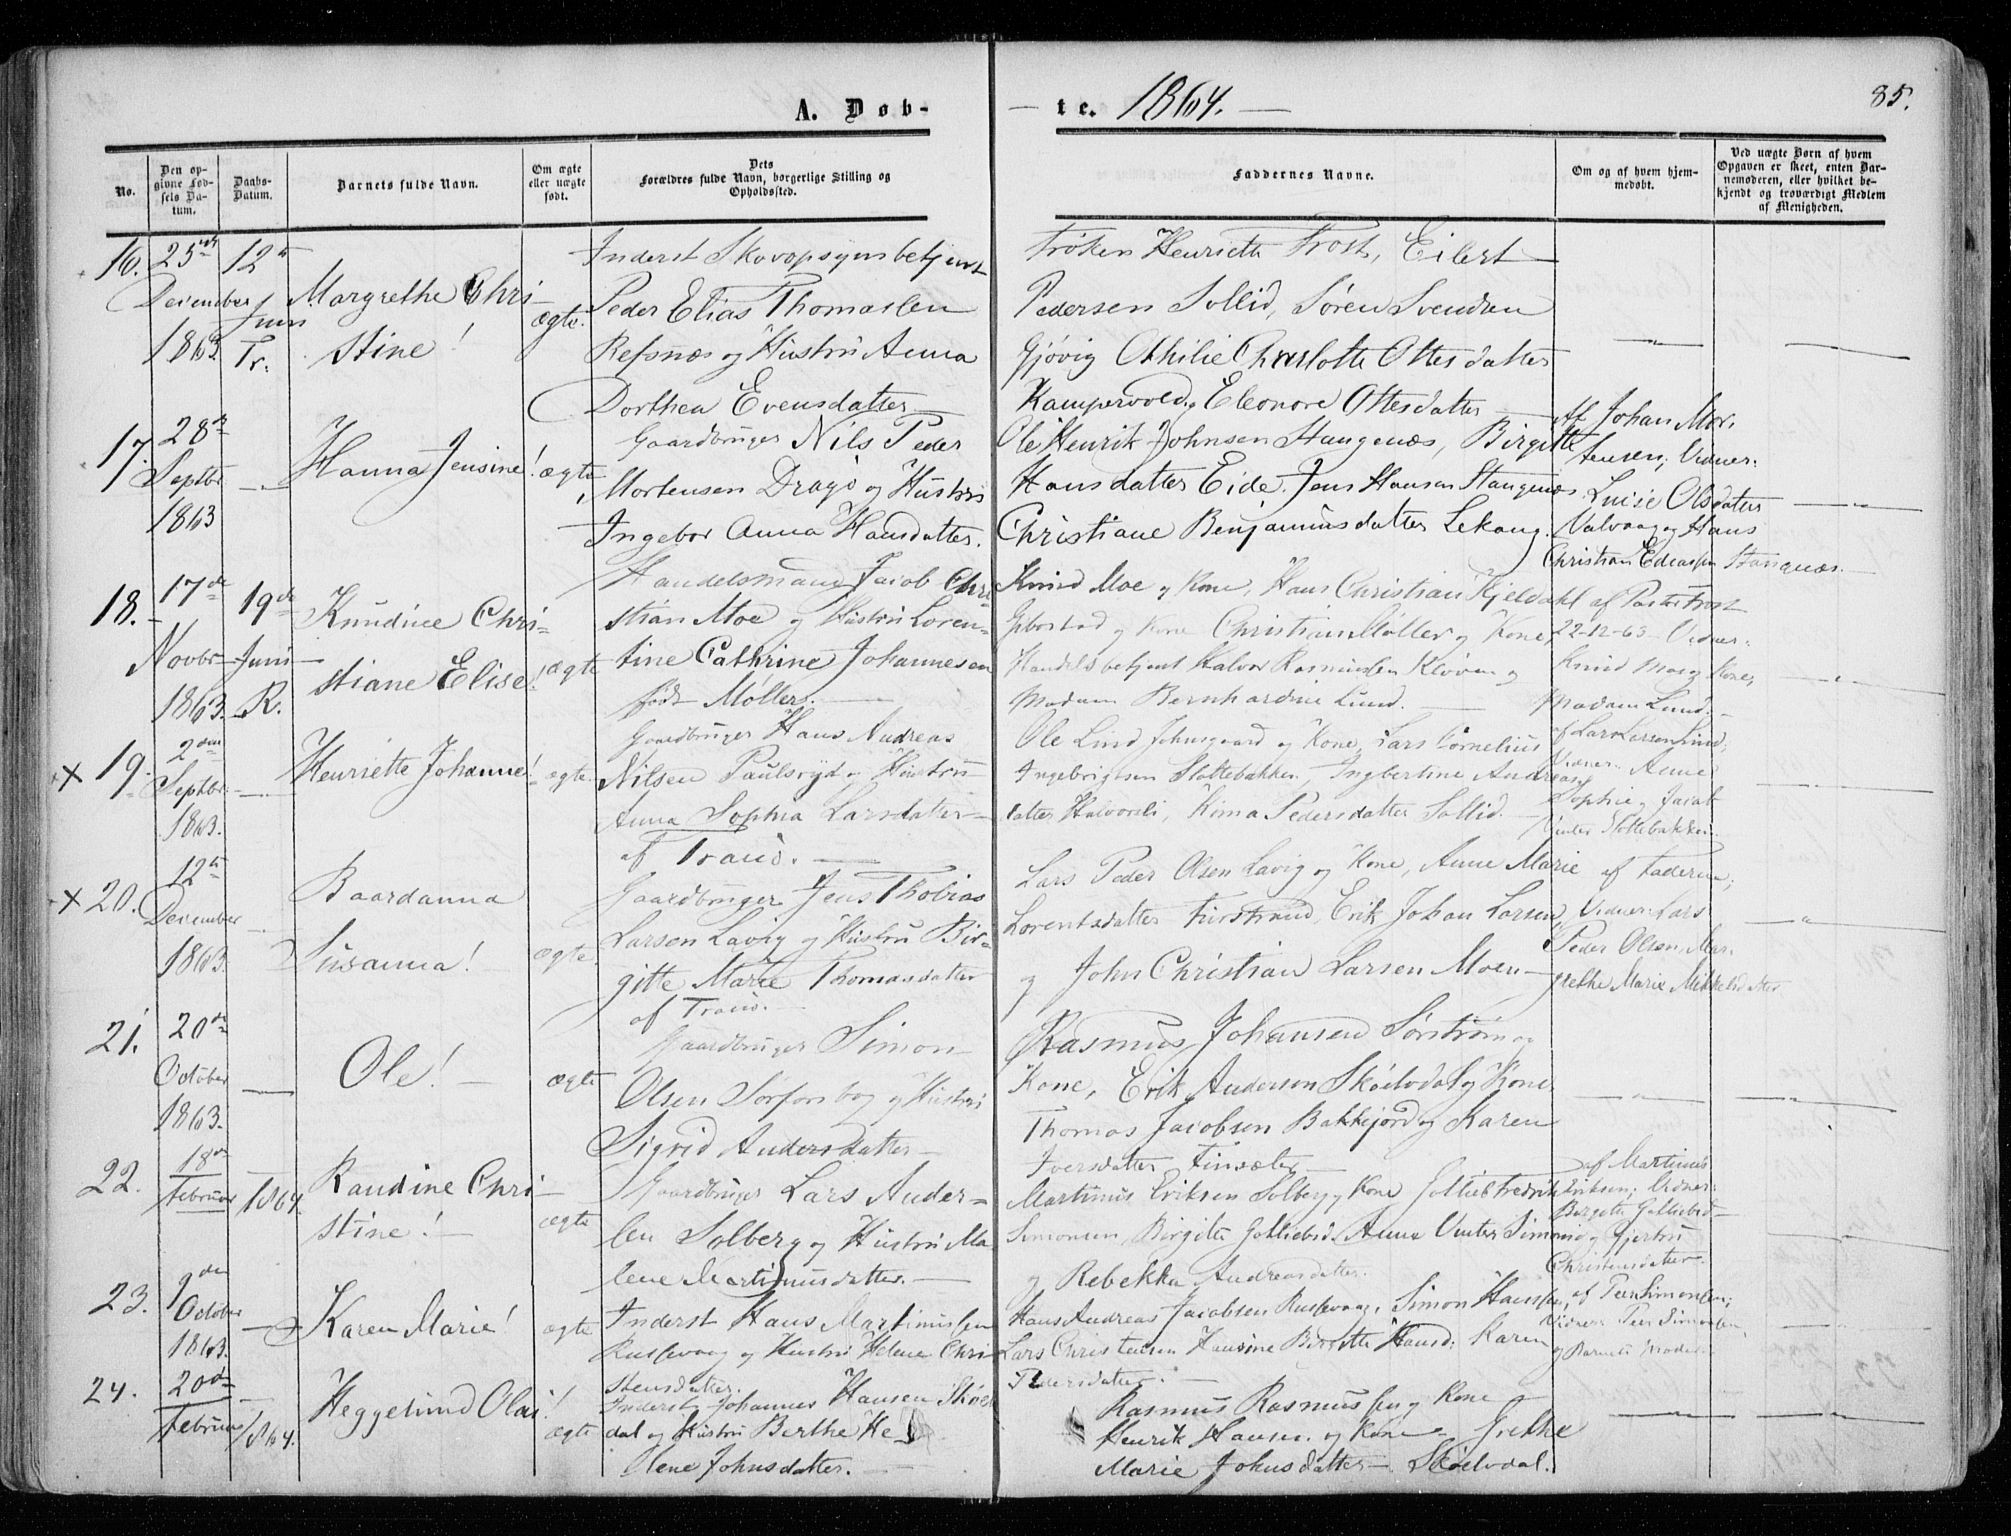 A. Døb-
te. 1864.
85.
No.
Den op-
givne Fød-
sels Da-
tum.
Daabs-
Datum.
Barnets fulde Navn.
Om ægte
eller uægte
født.
Dets
Forældres fulde Navn, borgerlige Stilling og
Opholdssted.
Faddernes Navne.
Om og af hvem hjem-
medøbt.
Ved uægte Børn af hvem
Opgaven er skeet, enten Bar-
nemoderen, eller hvilket be-
kjendt og troværdigt Medlem
af Menigheden.
16.
25
December
1863
12
Juni
Tr.
Margrethe Chri-
stine!
ægte.
Inderst Skovopsynsbetjent
Peder Elias Thomassen
Refsnæs og Hustru Anna
Dorthea Evensdatter
Frøken Henriette Frost, Eilert
Pedersen Sollid, Søren Svendsen
Gjøvig Othilie Charlotte Ottesdatter
Kampevold, Eleonore Ottesdatter
17.
28
Septbr
1863
Hanna Jensine!
ægte
Gaardbruger Nils Peder
Mortensen Dragö og Hustru
Ingebor Anna Hansdatter.
Ole Henrik Johnsen Stangenæs, Birgitte
Hansdatter Eide. Jens Hansen Stangenæs
Christiane Benjaminsdatter Lekang.
Af Johan Mor-
tensen; Vidner:
Lucie Olsdatter
Valvaag og Hans
Christian Edeassen Stangnæs.
18.
17de
Novbr
1863.
19de
Juni
R.
Knudine Chri-
stiane Elise!
ægte
Handelsmand Jacob Chri-
stian Moe og Hustru Loren-
tine Cathrine Johannesen
født Møller.
Knud Moe og Kone, Hans Christian Kjeldahl
Gibostad og Kone Christian Møller og Kone,
Handelsbetjent Halvor Rasmussen Kløven og
Madam Bernhardine Lund.
af Pastor Frost
22-12-63 Vidner:
Knud Moe og Kone,
Madam Lund.
19.
2den
Septbr.
1863.
Henriette Johanne!
ægte
Gaardbruger Hans Andreas
Nilsen Paulsryd og Hustru
Anna Sophia Larsdatter
af Tranö.
Ole Lind Johnsgaard og Kone, Lars Cornelius
Ingebrigtsen Slottebakken, Ingbertine Andreas-
datter Halvorsli, Kima Pedersdatter Sollid.
af Lars Larsen Lind;
Vidner: Anne
Sophie og Jacob
Vinter Slottebakken.
20.
12te
December
1863.
Baardanna
Susanna!
ægte.
Gaardbruger Jens Thobias
Larsen Lavig og Hustru Bir-
gitte Marie Thomasdatter
af Tranö.
Lars Peder Olsen Lavig og Kone, Anne Marie
Lorentsdatter Finstrand, Erik Johan Larsen
og John Christian Larsen Moen
af Faderen;
Vidner: Lars
Peder Olsen, Mar-
grethe Marie Mikkelsdatter
21.
20de
October
1863.
Ole!
ægte
Gaardbruger Simon
Olsen Sørforsbog og Hustru
Sigrid Andersdatter
Rasmus Johansen Sørstrøm og
Kone, Erik Andersen Skøelvdal og Kone
Thomas Jacobsen Bakkejord og Karen
Iversdatter Finsæter
22.
18de
Februar
1864.
Randine Chri-
stine!
ægte
Gaardbruger Lars Ander-
sen Solberg og Hustru Ma-
lene Martinusdatter.
Martinus Eriksen Solberg og Kone Gottlieb Fredrik
Simonsen, Birgitte Gottliebsd. Anne Vinter Simonsd
og Rebekka Andreasdatter.
af Martinus
Eriksen; Vidner:
Birgitte Gottliebsd
og Gjertru
Christensdatter.
23.
9den
October
1863.
Karen Marie!
ægte
Inderst Hans Martinussen
Russevaag og Hustru Helene Chri-
stensdatter.
Hans Andreas Jacobsen Russevaag, Simon Hanssen,
Lars Christensen Hansine Birgitte Hansd: Karen
Pedersdatter.
af Peer Simonsen;
Vidner: Peer Simonsen
og Barnets Moder.
24.
20de
Februar
1864.
Heggelund Olai!
ægte
Inderst Johannes Hansen Skøel-
dal og Hustru Berthe He-
lene Johnsdatter.
Rasmus Rasmussen og Kone
Henrik Hansen og Kone Grethe
Marie Johnsdatter Skøelvdal.